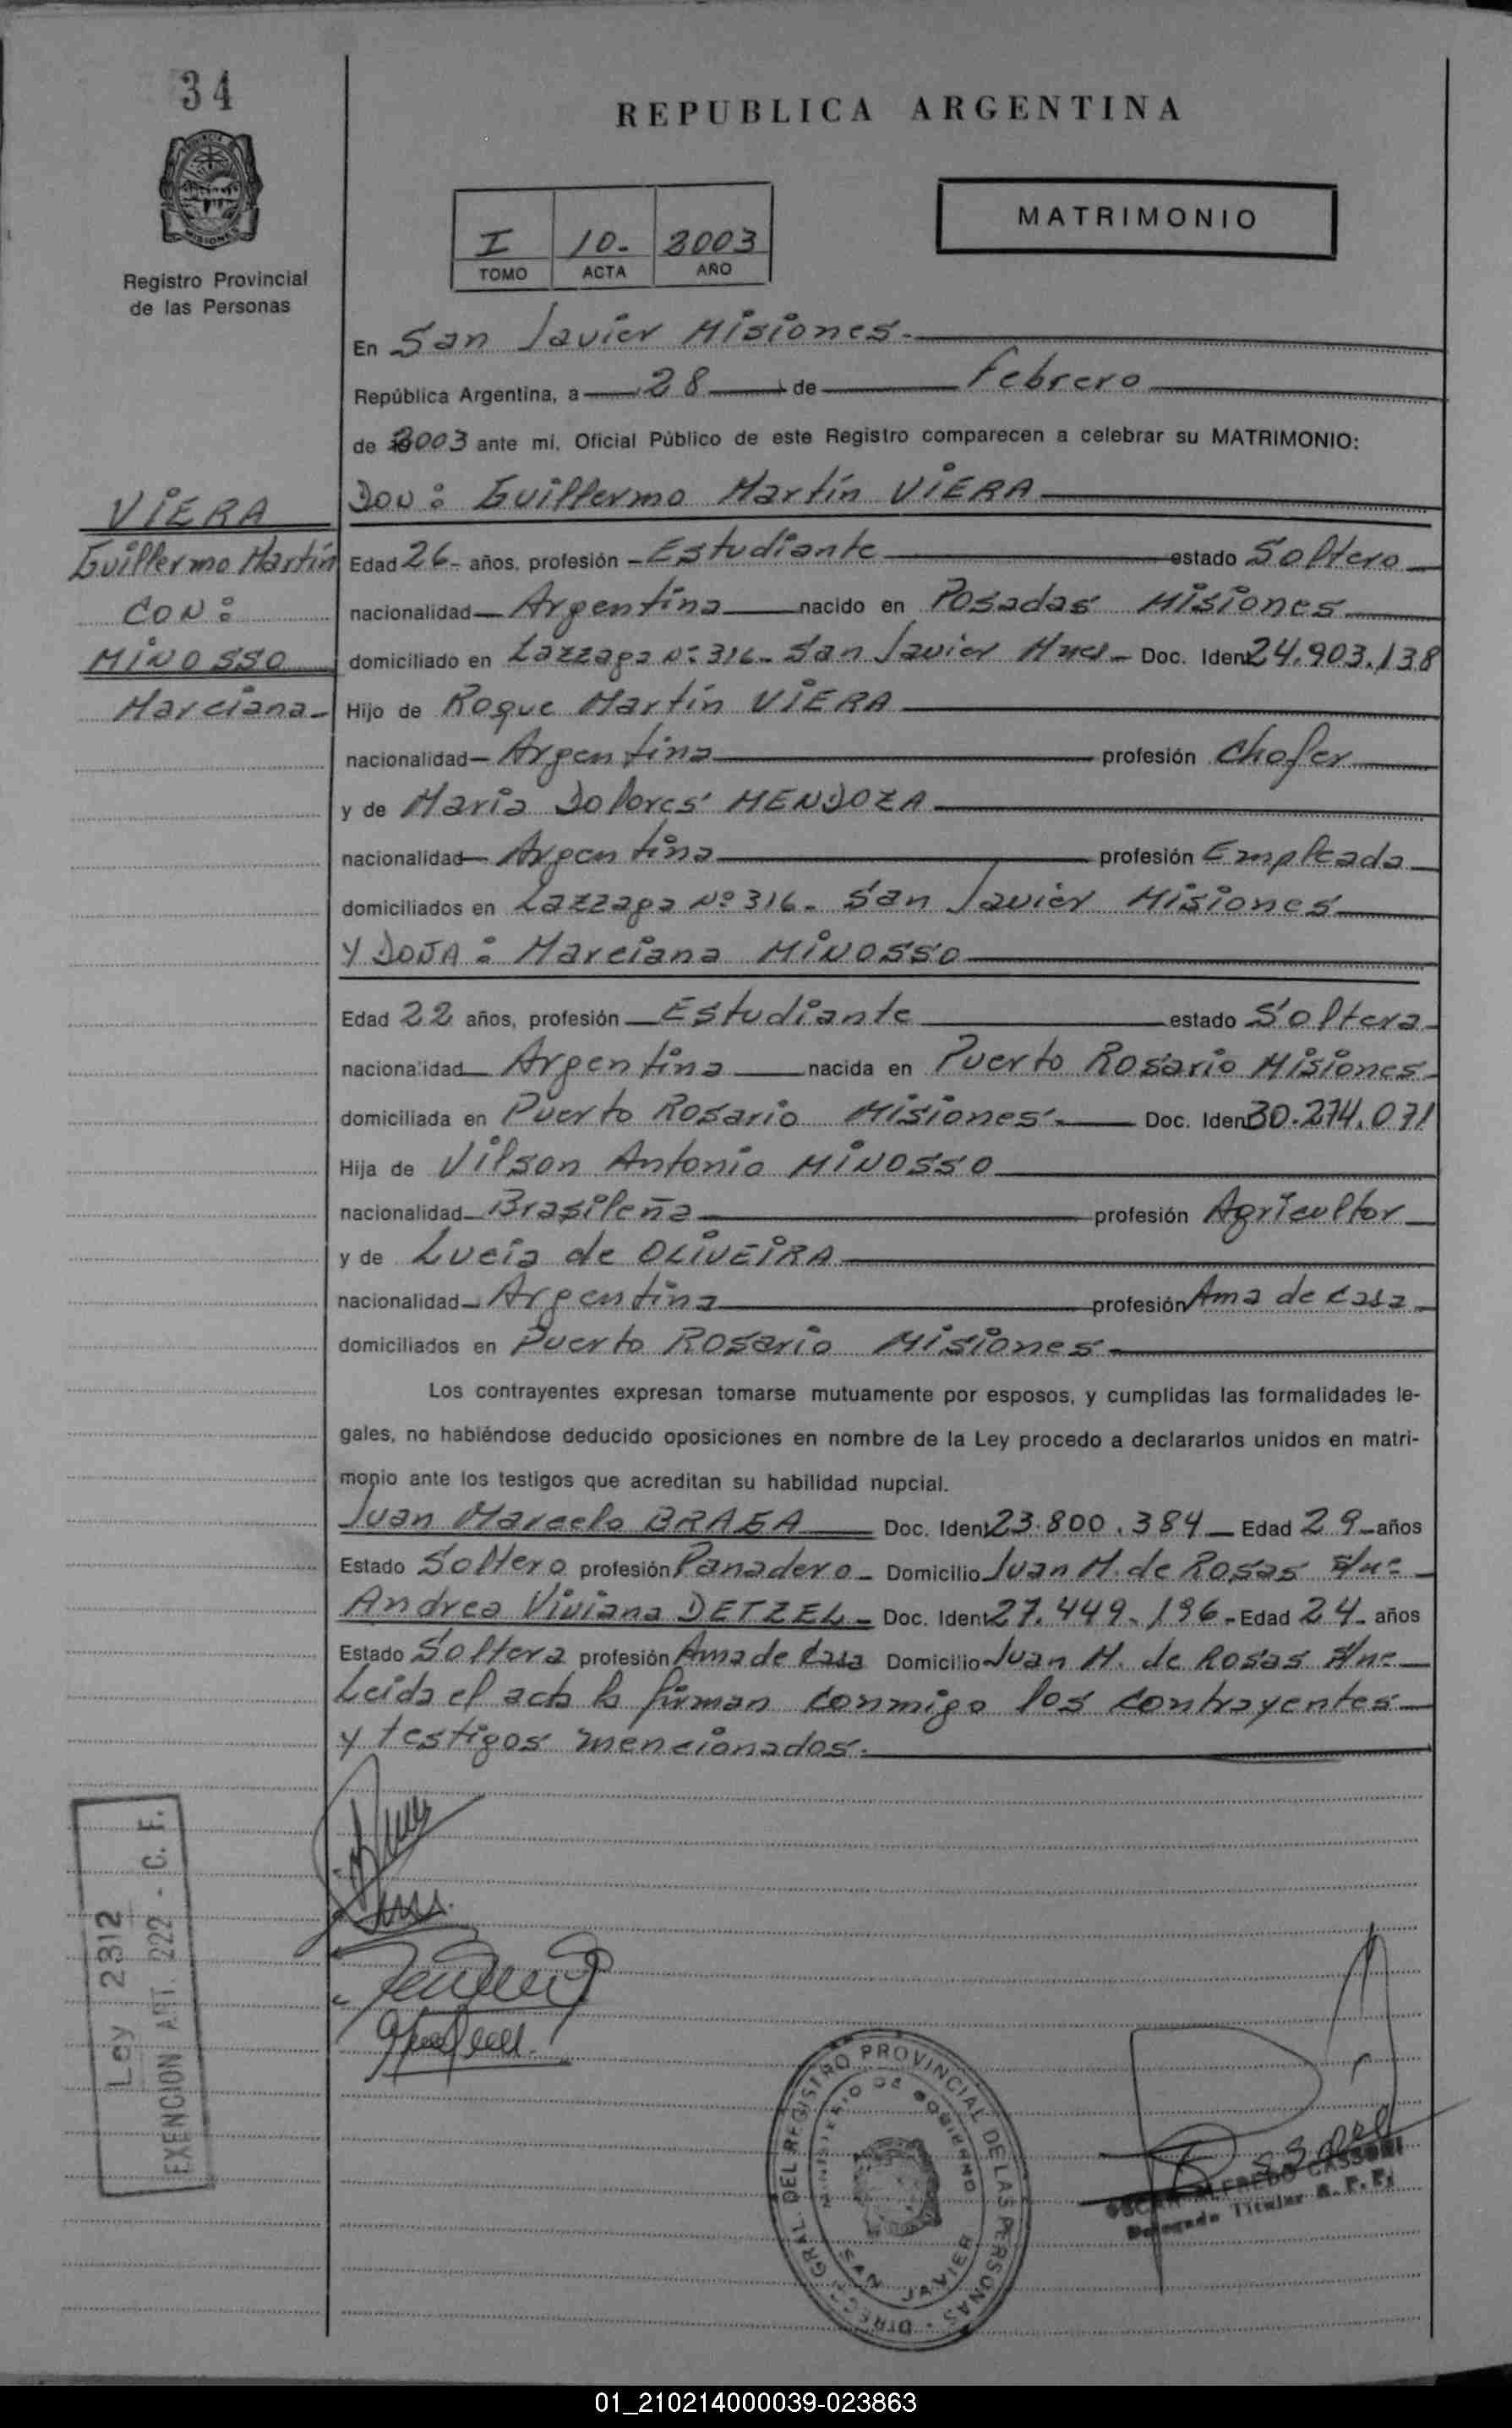 34
REPUBLICA ARGENTINA
MATRIMONIO
I 10- 2003
TOMO ACTA AÑO
MISIONES
Registro Provincial
de las Personas
En San Javier Misiones.
República Argentina, a 28 de Febrero
de 2003 ante mí, Oficial Público de este Registro comparecen a celebrar su MATRIMONIO:
VIERA
Guillermo Martín
CON:
MINOSSO
Marciana
DON: Guillermo Martín VIERA
Edad 26- años, profesión - Estudiante estado Soltero
nacionalidad Argentina nacido en Posadas Misiones
domiciliado en Lazzaga Nº 316- San Javier Mnes- Doc. Iden 24.903.138
Hijo de Roque Martín VIERA
nacionalidad Argentina profesión Chofer
y de María Dolores MENDOZA
nacionalidad Argentina profesión Empleada
domiciliados en Lazzaga Nº 316- San Javier Misiones
Y DOÑA: Marciana MINOSSO
Edad 22 años, profesión Estudiante estado Soltera
nacionalidad Argentina nacida en Puerto Rosario Misiones
domiciliada en Puerto Rosario Misiones.- Doc. Iden 30.274.071
Hija de Vilson Antonio MINOSSO
nacionalidad Brasileña profesión Agricultor
y de Lucía de OLIVEIRA
nacionalidad Argentina profesión Ama de casa
domiciliados en Puerto Rosario Misiones
Los contrayentes expresan tomarse mutuamente por esposos, y cumplidas las formalidades le-
gales, no habiéndose deducido oposiciones en nombre de la Ley procedo a declararlos unidos en matri-
monio ante los testigos que acreditan su habilidad nupcial.
Juan Marcelo Doc. Iden 23.800.384 Edad 29 años
Estado Soltero profesión Panadero- Domicilio Juan M. de Rosas S/nº
Andrea Viviana DETZEL- Doc. Iden 27.449.196- Edad 24- años
Estado Soltera profesión Ama de Casa Domicilio Juan M. de Rosas S/nº
Leída el acta la firman conmigo los contrayentes
y testigos mencionados.
Ley 2312
EXENCION ART. 222 - C. F.
DIREC. GRAL. DEL REGISTRO PROVINCIAL DE LAS PERSONAS
MINISTERIO DE GOBIERNO
SAN JAVIER
OSCAR ALFREDO CASSONI
Delegado Titular R. P. P.
01_210214000039-023863